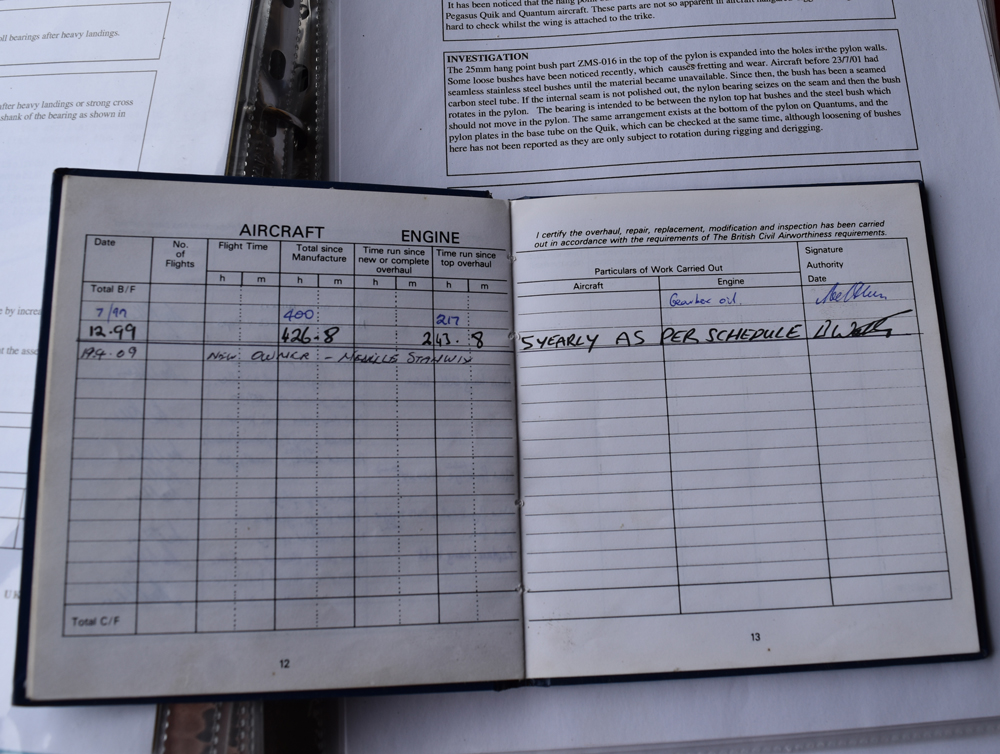 ll bearings after heavy landings.
after heavy landings or strong cross
shank of the bearing as shown in
e by increa
t the asse
UK
It has been noticed that the hang point
Pegasus Quik and Quantum aircraft. These parts are not so apparent in aircraft
hard to check whilst the wing is attached to the trike.
INVESTIGATION
The 25mm hang point bush part ZMS-016 in the top of the pylon is expanded into the holes in the pylon walls.
Some loose bushes have been noticed recently, which causes fretting and wear. Aircraft before 23/7/01 had
seamless stainless steel bushes until the material became unavailable. Since then, the bush has been a seamed
carbon steel tube. If the internal seam is not polished out, the nylon bearing seizes on the seam and then the bush
rotates in the pylon. The bearing is intended to be between the nylon top hat bushes and the steel bush which
should not move in the pylon. The same arrangement exists at the bottom of the pylon on Quantums, and the
pylon plates in the base tube on the Quik, which can be checked at the same time, although loosening of bushes
here has not been reported as they are only subject to rotation during rigging and derigging.
AIRCRAFT ENGINE
Date No. of Flights Flight Time Total since Manufacture Time run since new or complete overhaul Time run since top overhaul
h m h m h m h m
Total B/F
7/99 400 217
12.99 426.8 243.8
19.9.09 NEW OWNER - NEVILLE STANWIX
Total C/F
12
I certify the overhaul, repair, replacement, modification and inspection has been carried
out in accordance with the requirements of The British Civil Airworthiness requirements.
Particulars of Work Carried Out
Signature
Authority
Date
Aircraft Engine
Gearbox oil.
5 YEARLY AS PER SCHEDULE
13